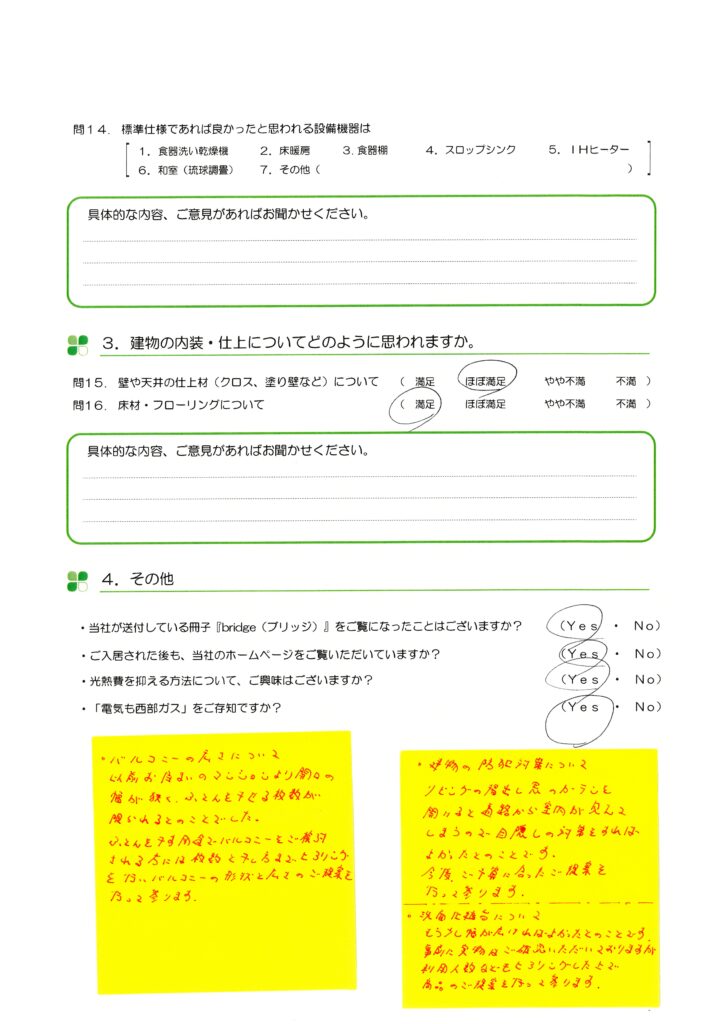 問14. 標準仕様であれば良かったと思われる設備機器は
1. 食器洗い乾燥機 2. 床暖房 3. 食器棚 4. スロップシンク 5. IHヒーター
6. 和室（琉球調畳） 7. その他（ ）
具体的な内容、ご意見があればお聞かせください。
3. 建物の内装・仕上についてどのように思われますか。
問15. 壁や天井の仕上材（クロス、塗り壁など）について （ 満足 ほぼ満足 やや不満 不満 ）
問16. 床材・フローリングについて （ 満足 ほぼ満足 やや不満 不満 ）
具体的な内容、ご意見があればお聞かせください。
4. その他
・当社が送付している冊子『bridge（ブリッジ）』をご覧になったことはございますか？ （Yes ・ No）
・ご入居された後も、当社のホームページをご覧いただいていますか？ （Yes ・ No）
・光熱費を抑える方法について、ご興味はございますか？ （Yes ・ No）
・「電気も西部ガス」をご存知ですか？ （Yes ・ No）
・バルコニーの広さについて
以前お住まいのマンションより開口の
幅が狭く、ふとんを干せる枚数が
限られるとのことでした。
ふとんを干す用途でバルコニーをご検討
される方には枚数と干し方までヒアリング
を行い、バルコニーの形状と広さのご提案を
行って参ります。
・建物の防犯対策について
リビングの掃出し窓のカーテンを
開けると道路から室内が見えて
しまうので目隠しの対策をすれば
よかったとのことです。
今後、ご予算に合ったご提案を
行って参ります。
・洗面化粧台について
もう少し幅が広ければよかったとのことです。
事前に実物はご確認いただいておりますが
利用人数などをヒアリングした上で
商品のご提案を行って参ります。